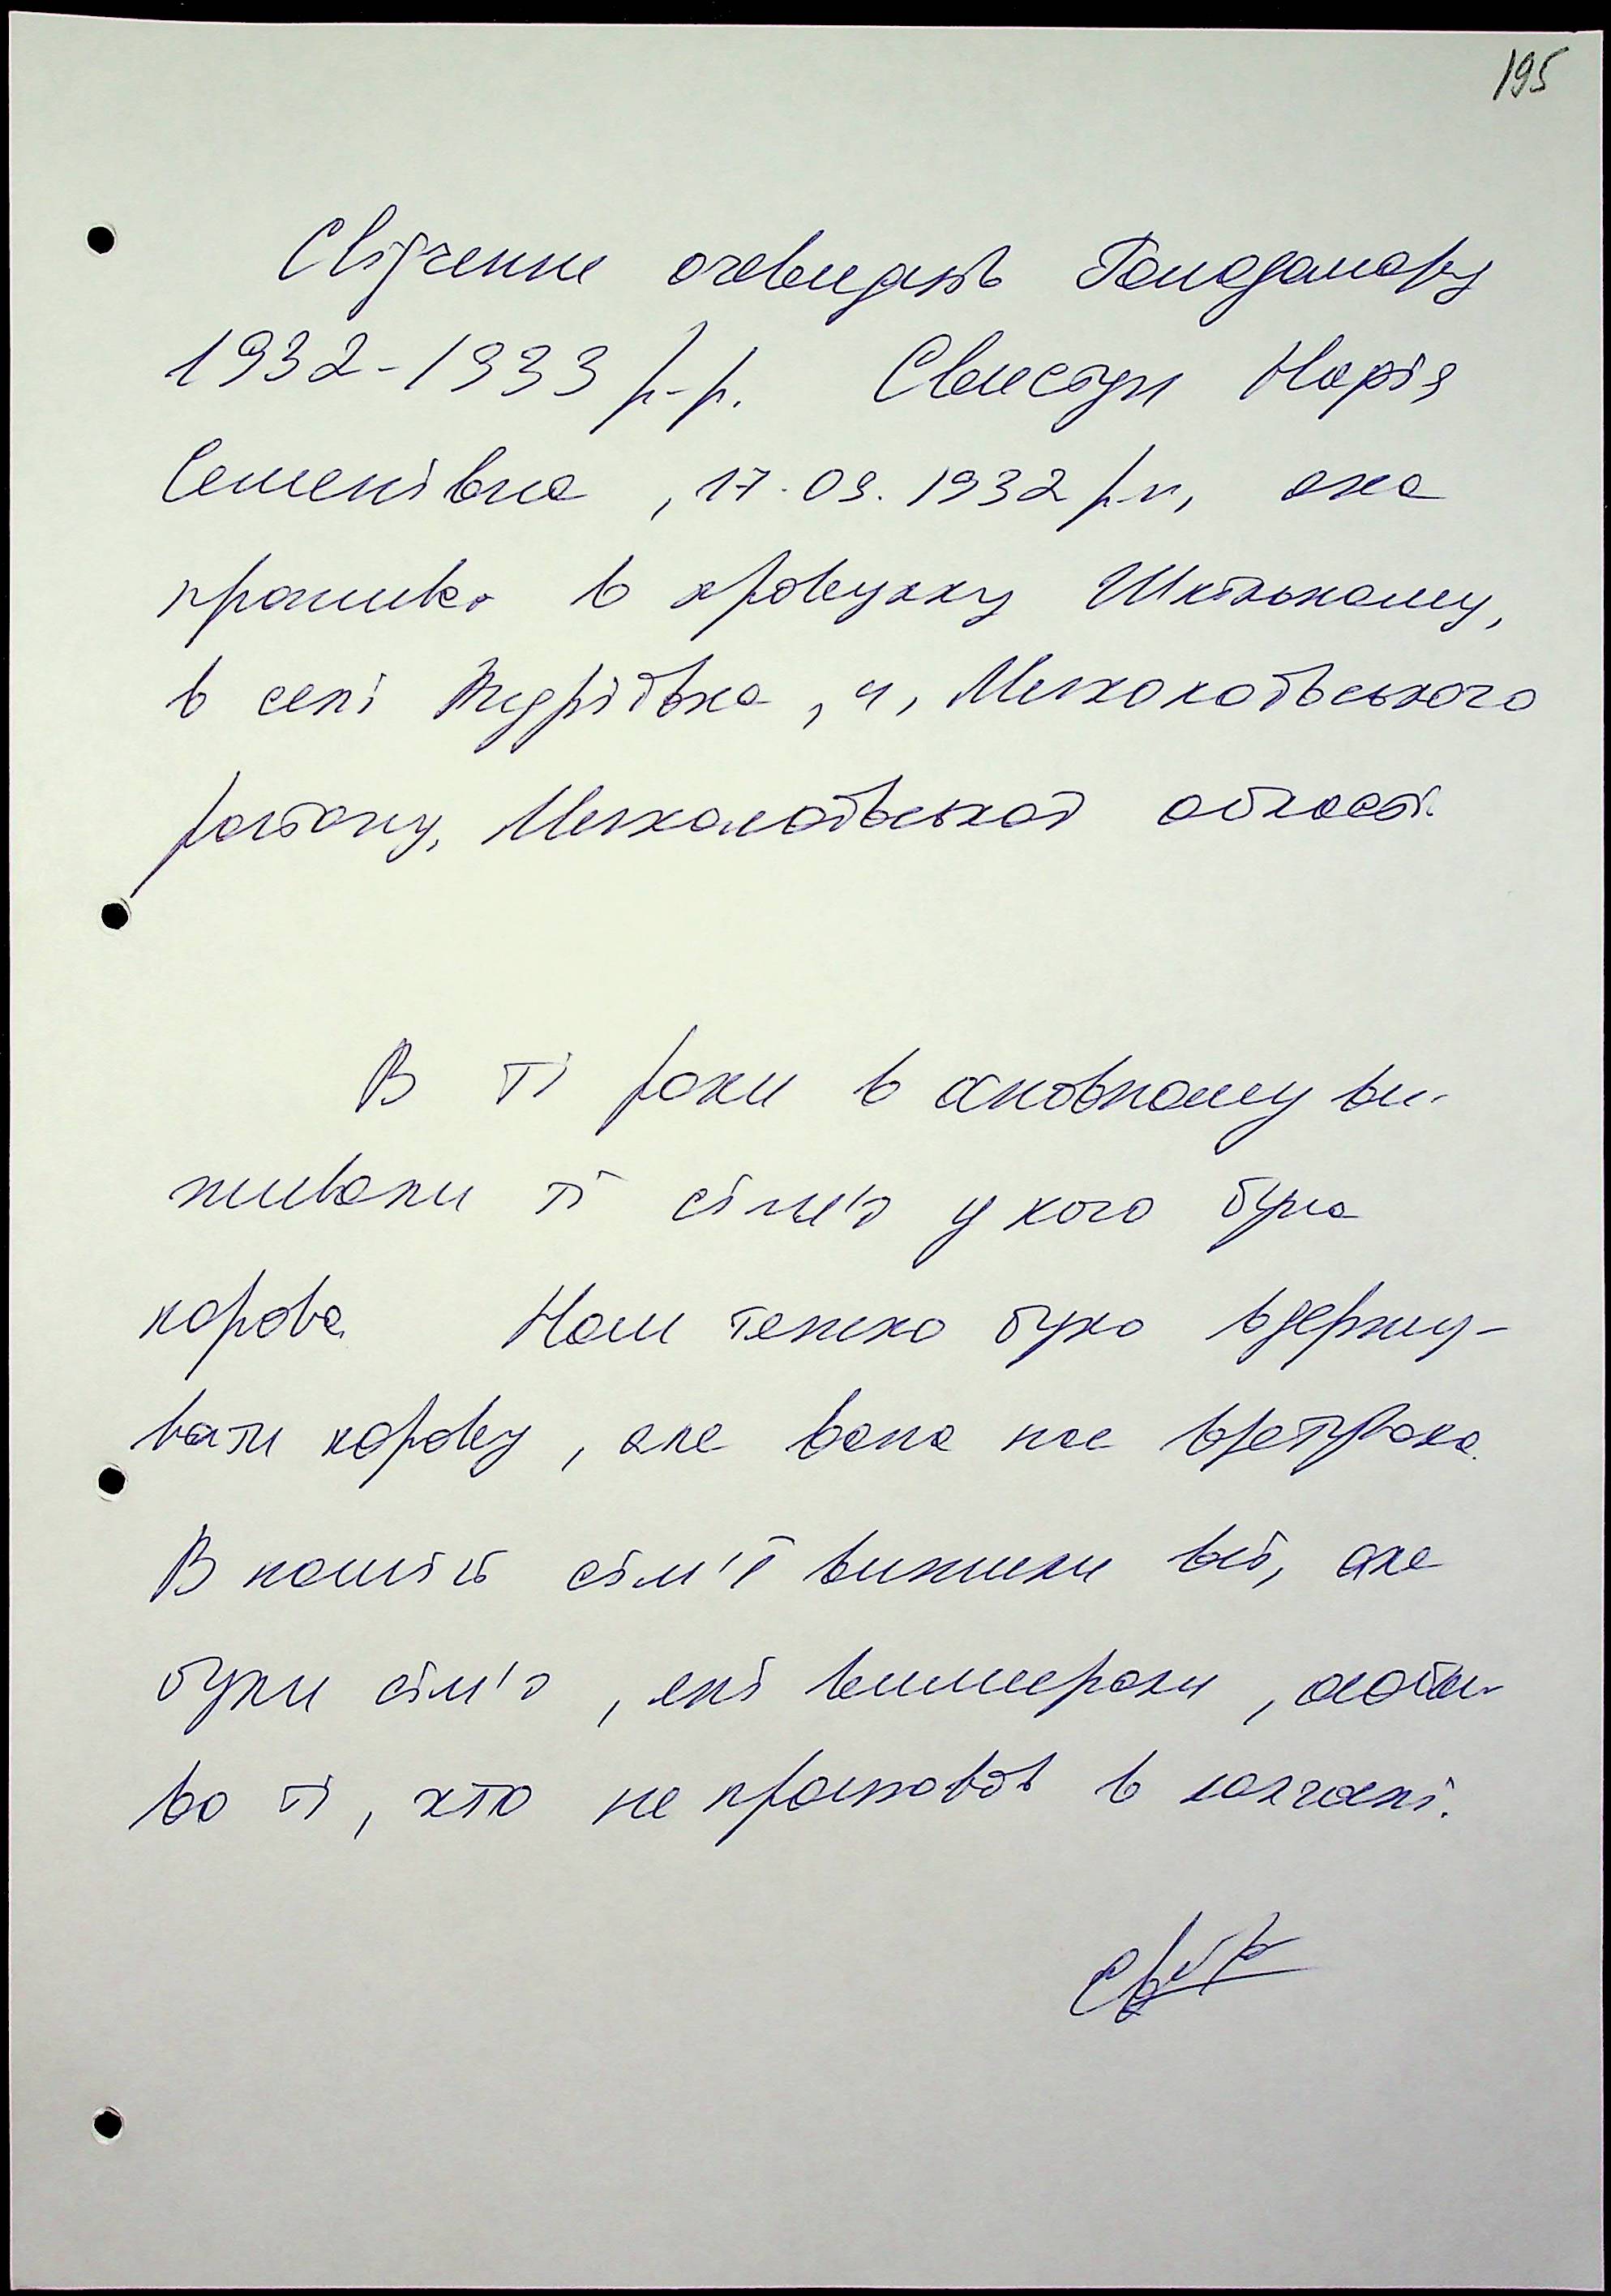 195
Свідчення очевидців Голодомору
1932-1933 р-р. Свистун Марія
Семенівна, 17.09.1932 р.н, яка
проживає в провулку Шкільному,
в селі 4, Миколаївського
району, Миколаївської області.
В ті роки в основному ви-
живали ті сім'ї у кого була
корова. Нам тяжко було вдержу-
вати корову, але вона нас врятувала.
В нашій сім'ї вижили всі, але
були сім'ї, які вимерали,
во ті, хто не працював в колгоспі.